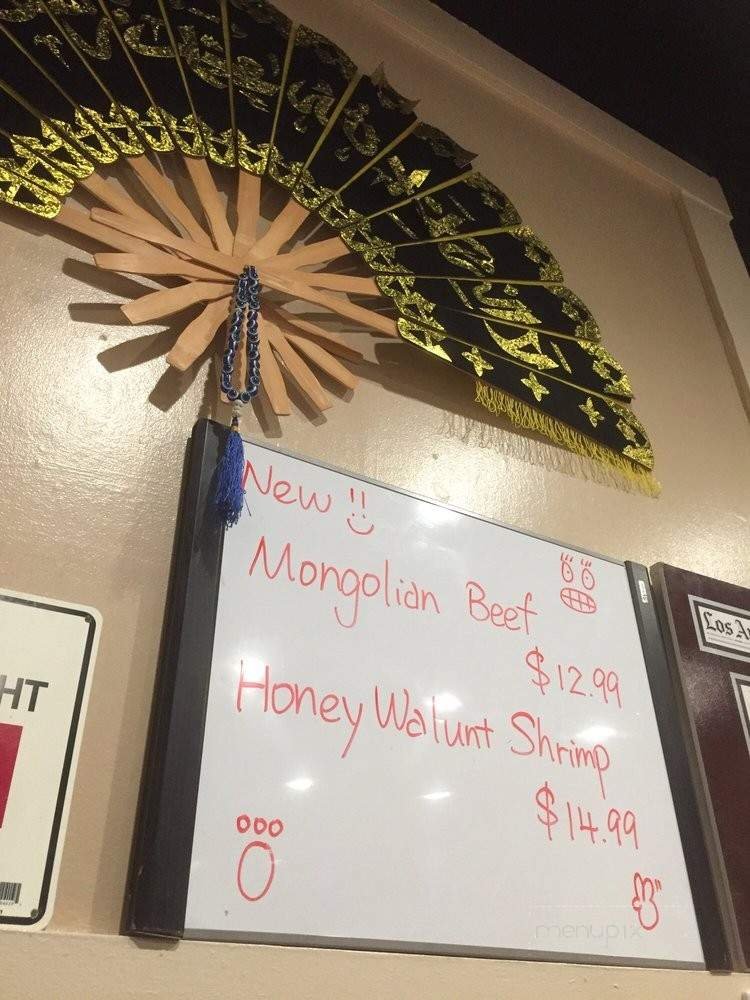 New !!
Mongolian Beef
$12.99
Honey Walunt Shrimp
$14.99
HT
menupix